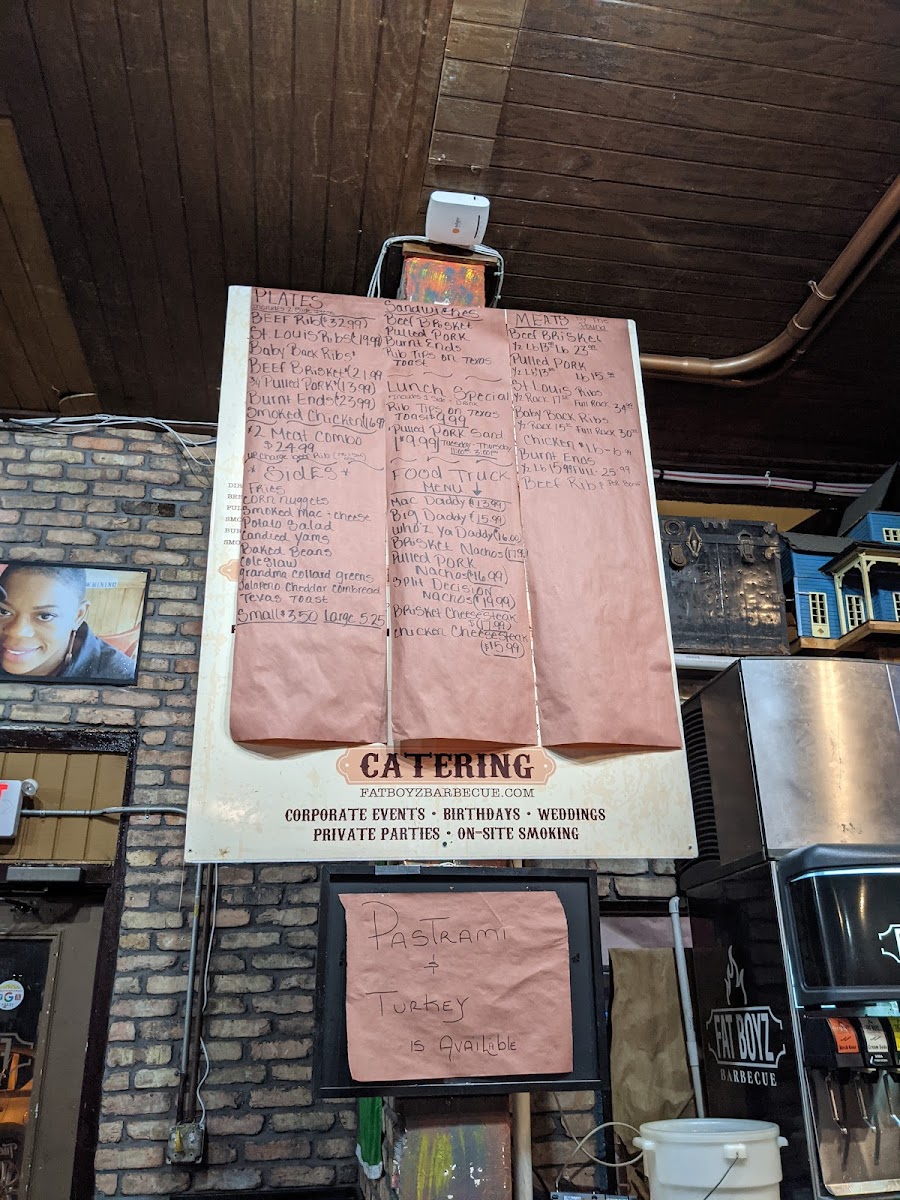 PLATES
BEEF Rib($32.99)
St. Louis Ribs
Baby Back Ribs
BEEF Brisket
Pulled Pork (13.99)
Burnt Ends (23.99)
Smoked Chicken
2 Meat Combo
$24.99
SIDES
FRIES
Corn nuggets
Smoked Mac + cheese
Potato Salad
Candied Yams
Baked Beans
Coleslaw
grandma collard greens
Jalapeno Cheddar Cornbread
Texas Toast
Small $3.50 large 5.25
Sandwiches
Beef Brisket
Pulled PORK
Burnt Ends
Rib Tips on Texas
Toast
Lunch Special
Rib Tips on Texas
Toast
Pulled PORK Sand
$9.99 Tuesday - Thursday
Food Truck
MENU
Mac Daddy $13.99
Big Daddy (15.99)
Who'z Ya Daddy
Brisket Nachos
Pulled PORK
Nachos ($16.99)
Split Decision
Nachos
Brisket Cheesesteak
$(17.99)
Chicken Cheesesteak
($15.99)
MEATS By The
Pound
Beef Brisket
Pulled Pork
St Louis Ribs
½ Rack Full Rack
Baby Back Ribs
½ Rack Full Rack
Chicken
Burnt Ends
½ Lb 15.99 Full 25.99
Beef Rib Per Bone
CATERING
FATBOYZBARBECUE.COM
CORPORATE EVENTS • BIRTHDAYS • WEDDINGS
PRIVATE PARTIES • ON-SITE SMOKING
PASTRAMI
+
TURKEY
IS AVAILABLE
FAT BOYZ
BARBECUE